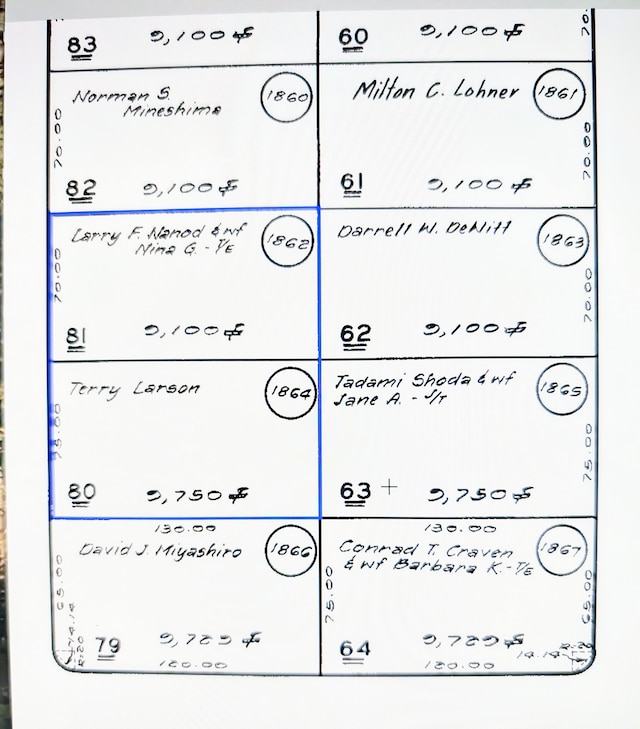 83 9,100 ⌗
60 9,100 ⌗
70.
Norman S.
Mineshima
1860
70.00
82 9,100 ⌗
Milton C. Lohner
1861
70.00
61 9,100 ⌗
Larry F. Nanod & wf
Nina G. - T/E
1862
70.00
81 9,100 ⌗
Darrell W. DeWitt
1863
70.00
62 9,100 ⌗
Terry Larson
1864
75.00
80 9,750 ⌗
Tadami Shoda & wf
Jane A. - J/T
1865
75.00
63 + 9,750 ⌗
130.00
David J. Miyashiro
1866
65.00
14.14
R-20
79 9,729 ⌗
120.00
130.00
Conrad T. Craven
& wf Barbara K. - T/E
1867
75.00
65.00
64 9,729 ⌗
14.14
R-20
120.00